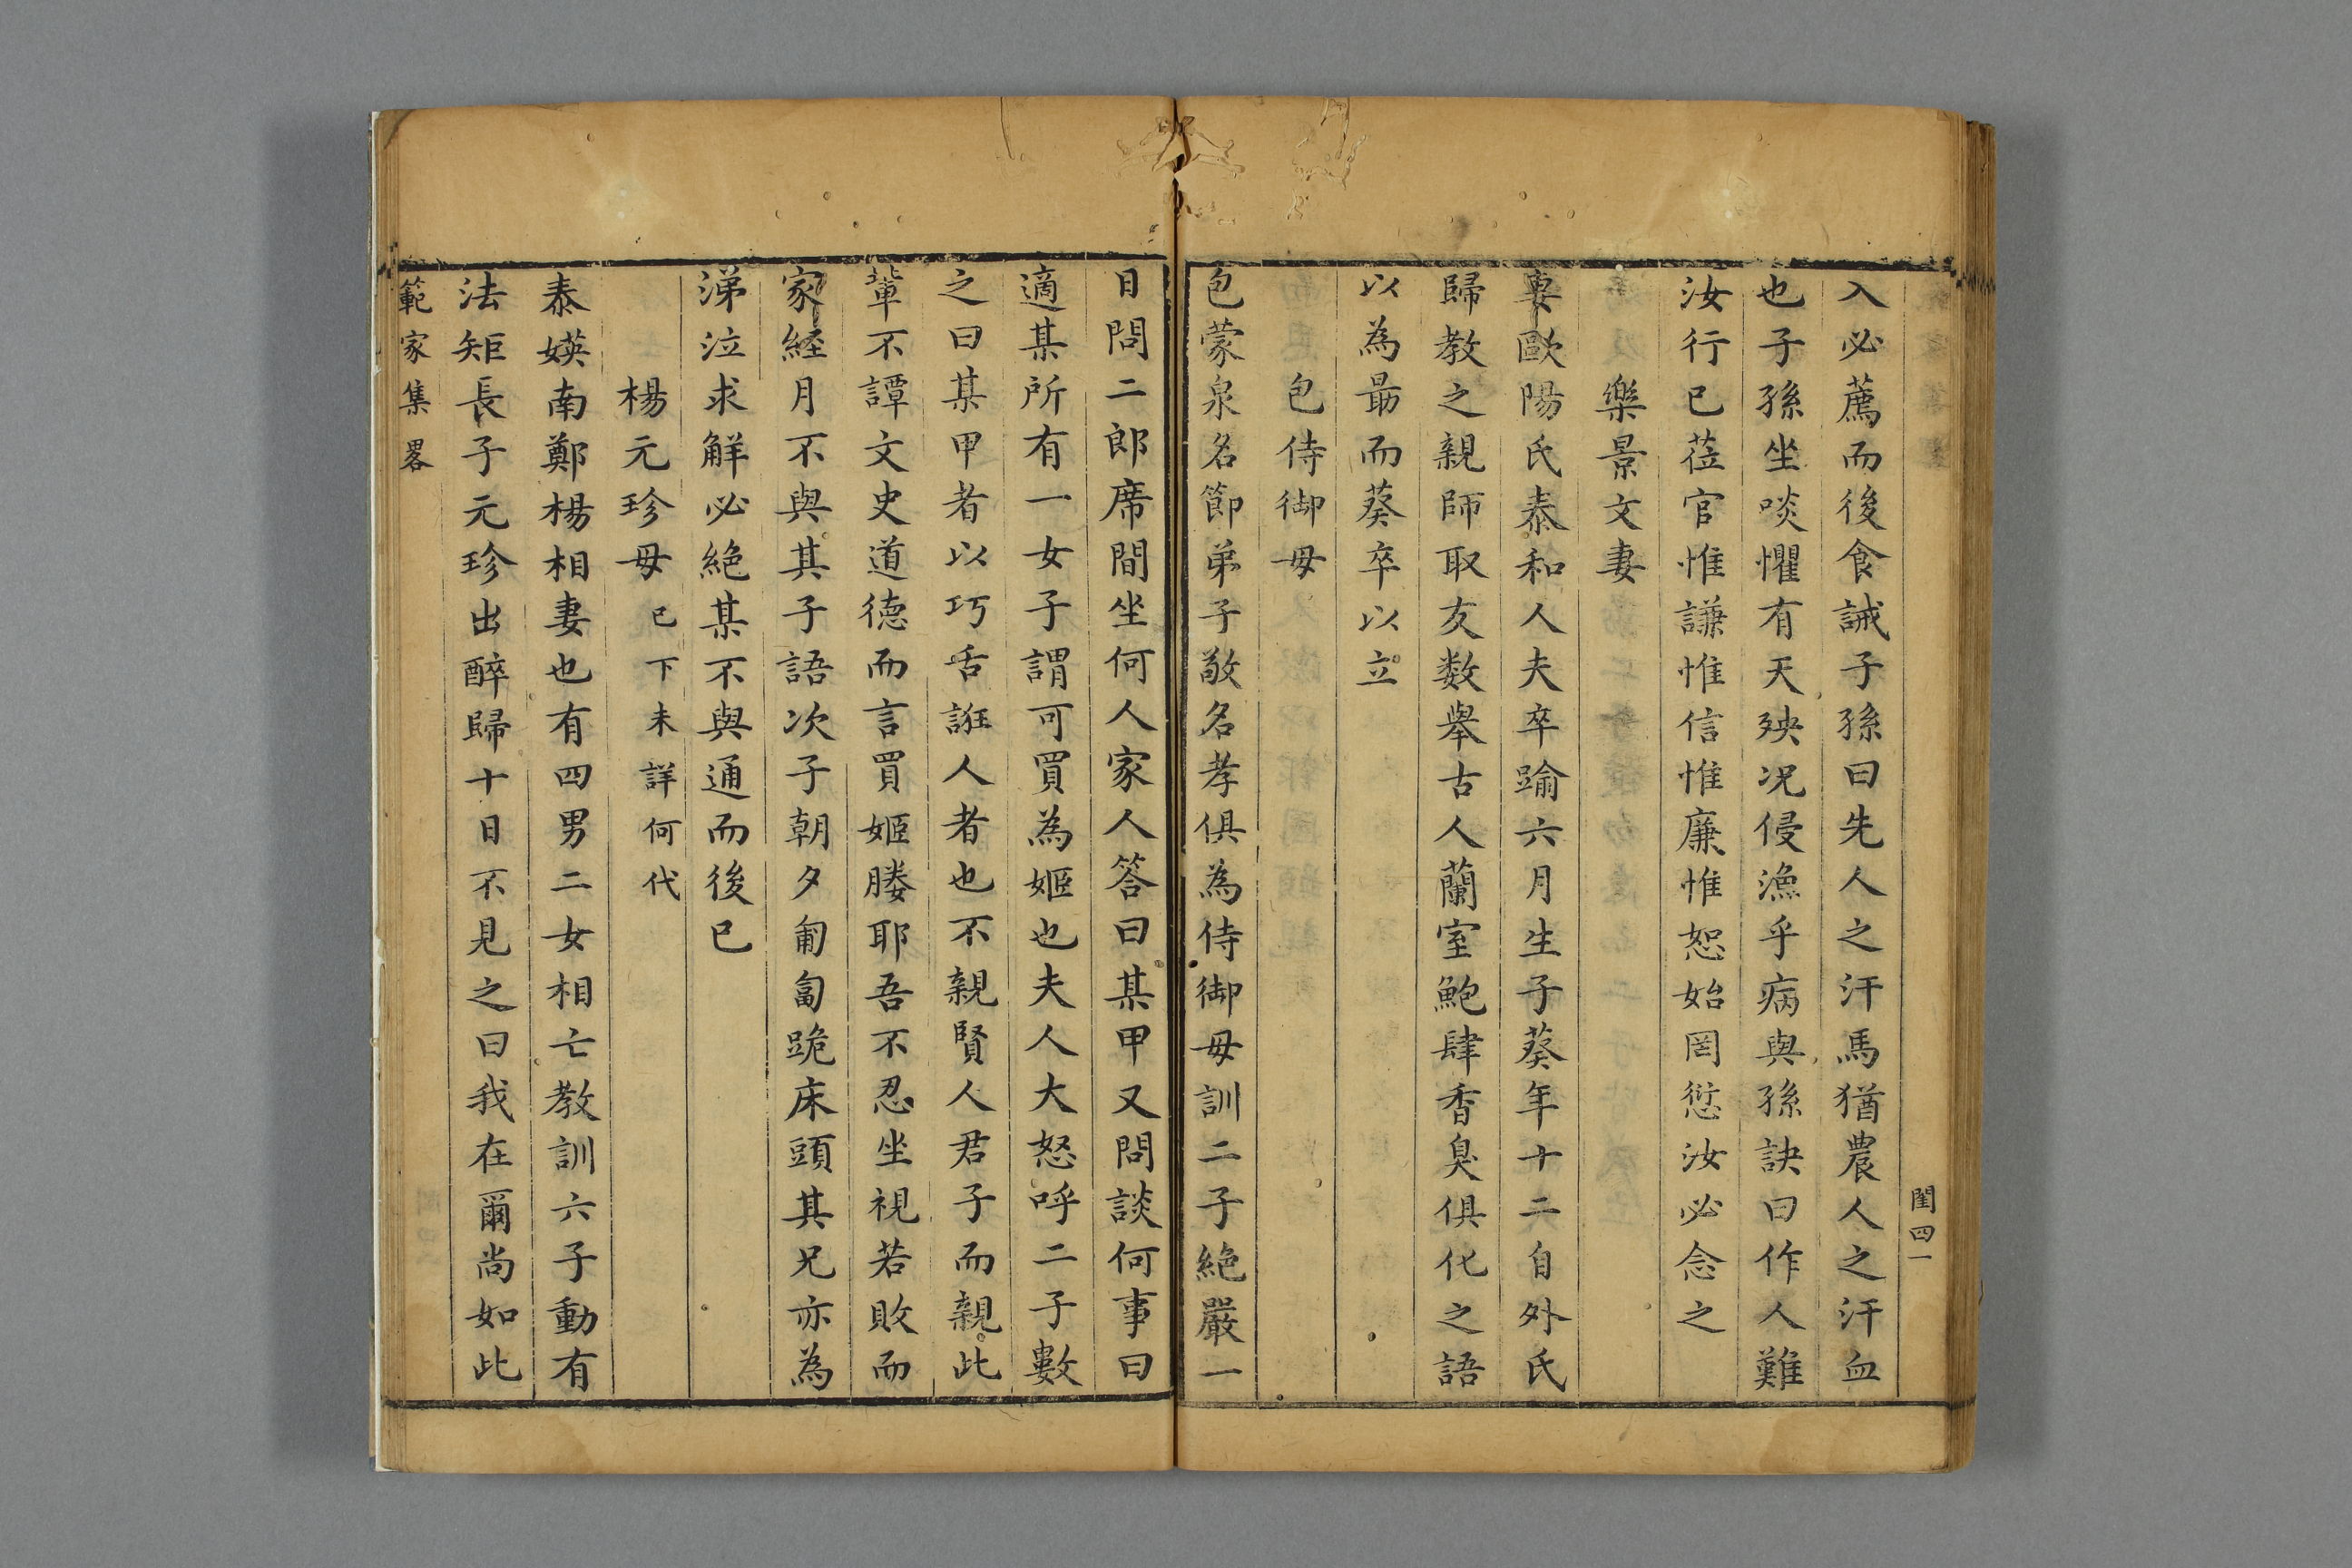 閨四一
入必薦而後食誡子孫曰先人之汗馬猶農人之汗血
也子孫坐啖懼有天殃况侵漁乎病與孫訣曰作人難
汝行已莅官惟謙惟信惟廉惟恕始罔愆汝必念之
樂景文妻
婁歐陽氏泰和人夫卒踰六月生子葵年十二自外氏
歸教之親師取友数舉古人蘭室鮑肆香臭俱化之語
以為最而葵卒以立
包侍御母
包蒙泉名節弟子敬名孝俱為侍御母訓二子絶嚴一
日問二郎席間坐何人家人答曰某甲又問談何事曰
適某所有一女子謂可買為姬也夫人大怒呼二子數
之曰某甲者以巧舌誑人者也不親賢人君子而親此
輩不譚文史道德而言買姬媵耶吾不忍坐視若敗而
家經月不與其子語次子朝夕匍匐跪床頭其兄亦為
涕泣求解必絶某不與通而後已
楊元珍母 已下未詳何代
泰媖南鄭楊相妻也有四男二女相亡教訓六子動有
法矩長子元珍出醉歸十日不見之曰我在爾尚如此
範家集畧